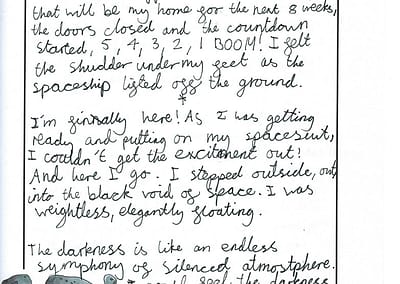 that will be my home for the next 8 weeks,
the doors closed and the countdown
started, 5, 4, 3, 2, 1 BOOM! I felt
the shudder under my feet as the
spaceship listed off the ground.
*
I'm finnally here! As I was getting
ready and putting on my spacesuit,
I couldn't get the excitment out!
And here I go. I stepped outside, out,
into the black void of space. I was
weightless, elegantly floating.
The darkness is like an endless
symphony of silenced atmostphere.
I could feel the darkness